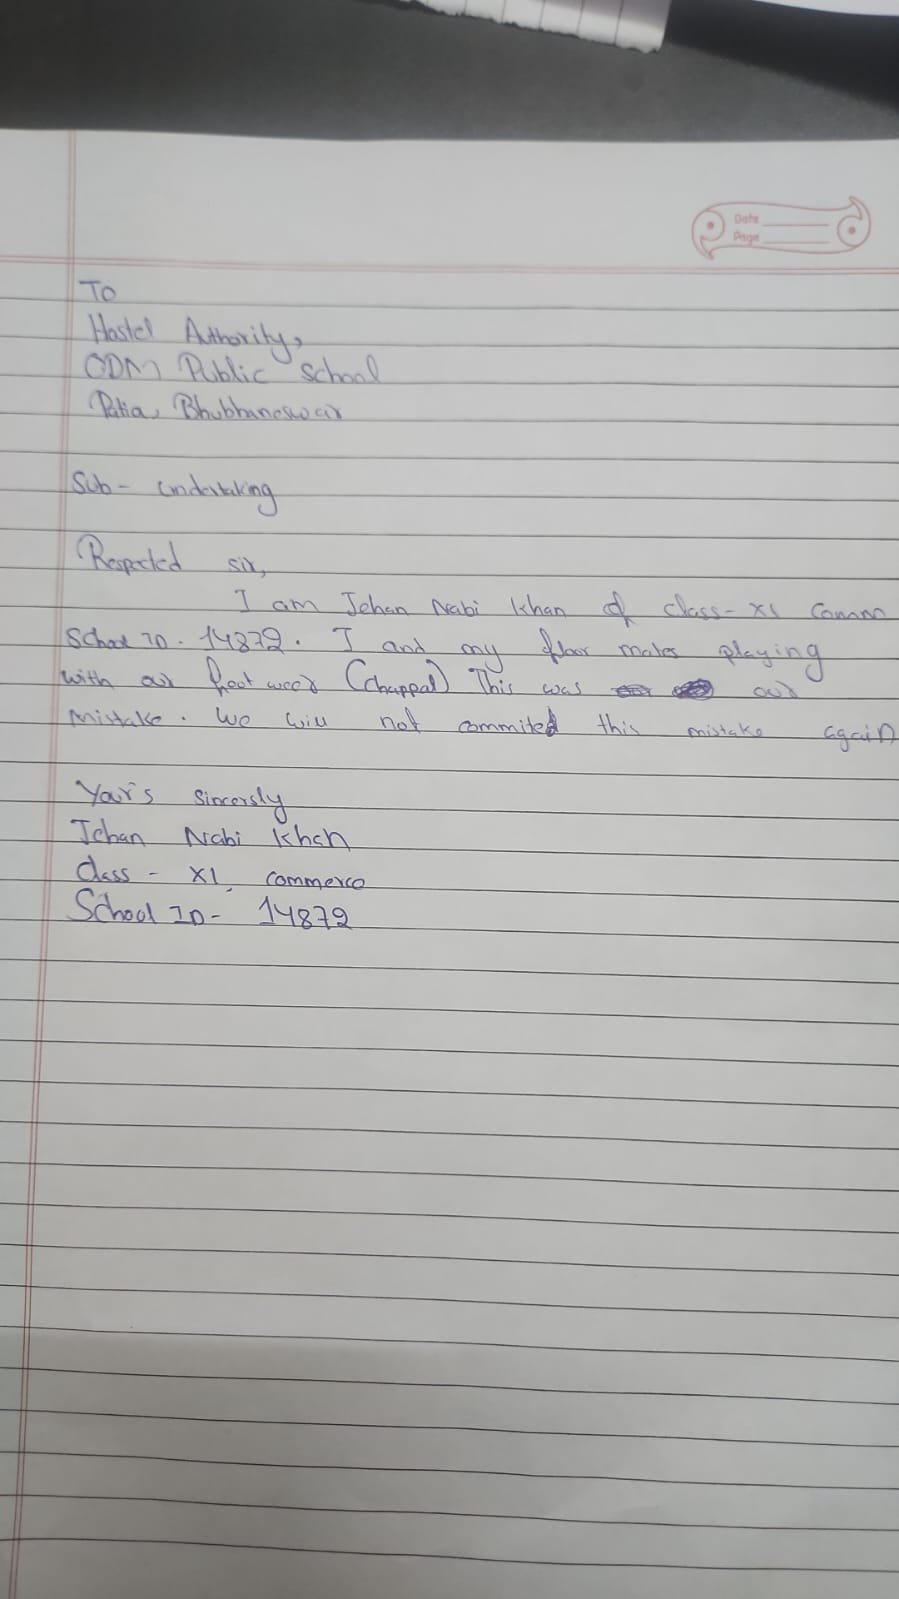 Date
Page
To
Hostel Authority,
ODM Public School
Patia, Bhubhaneswar
Sub- Undertaking
Respected sir,
I am Jehan Nabi Khan of class- XI Comm
School ID. 14872. I and my floor mates playing
with our foot wear (chappal) This was our
mistake. We will not commited this mistake again
Your's sincersly
Jehan Nabi Khan
Class - XI, commerce
School ID- 14872